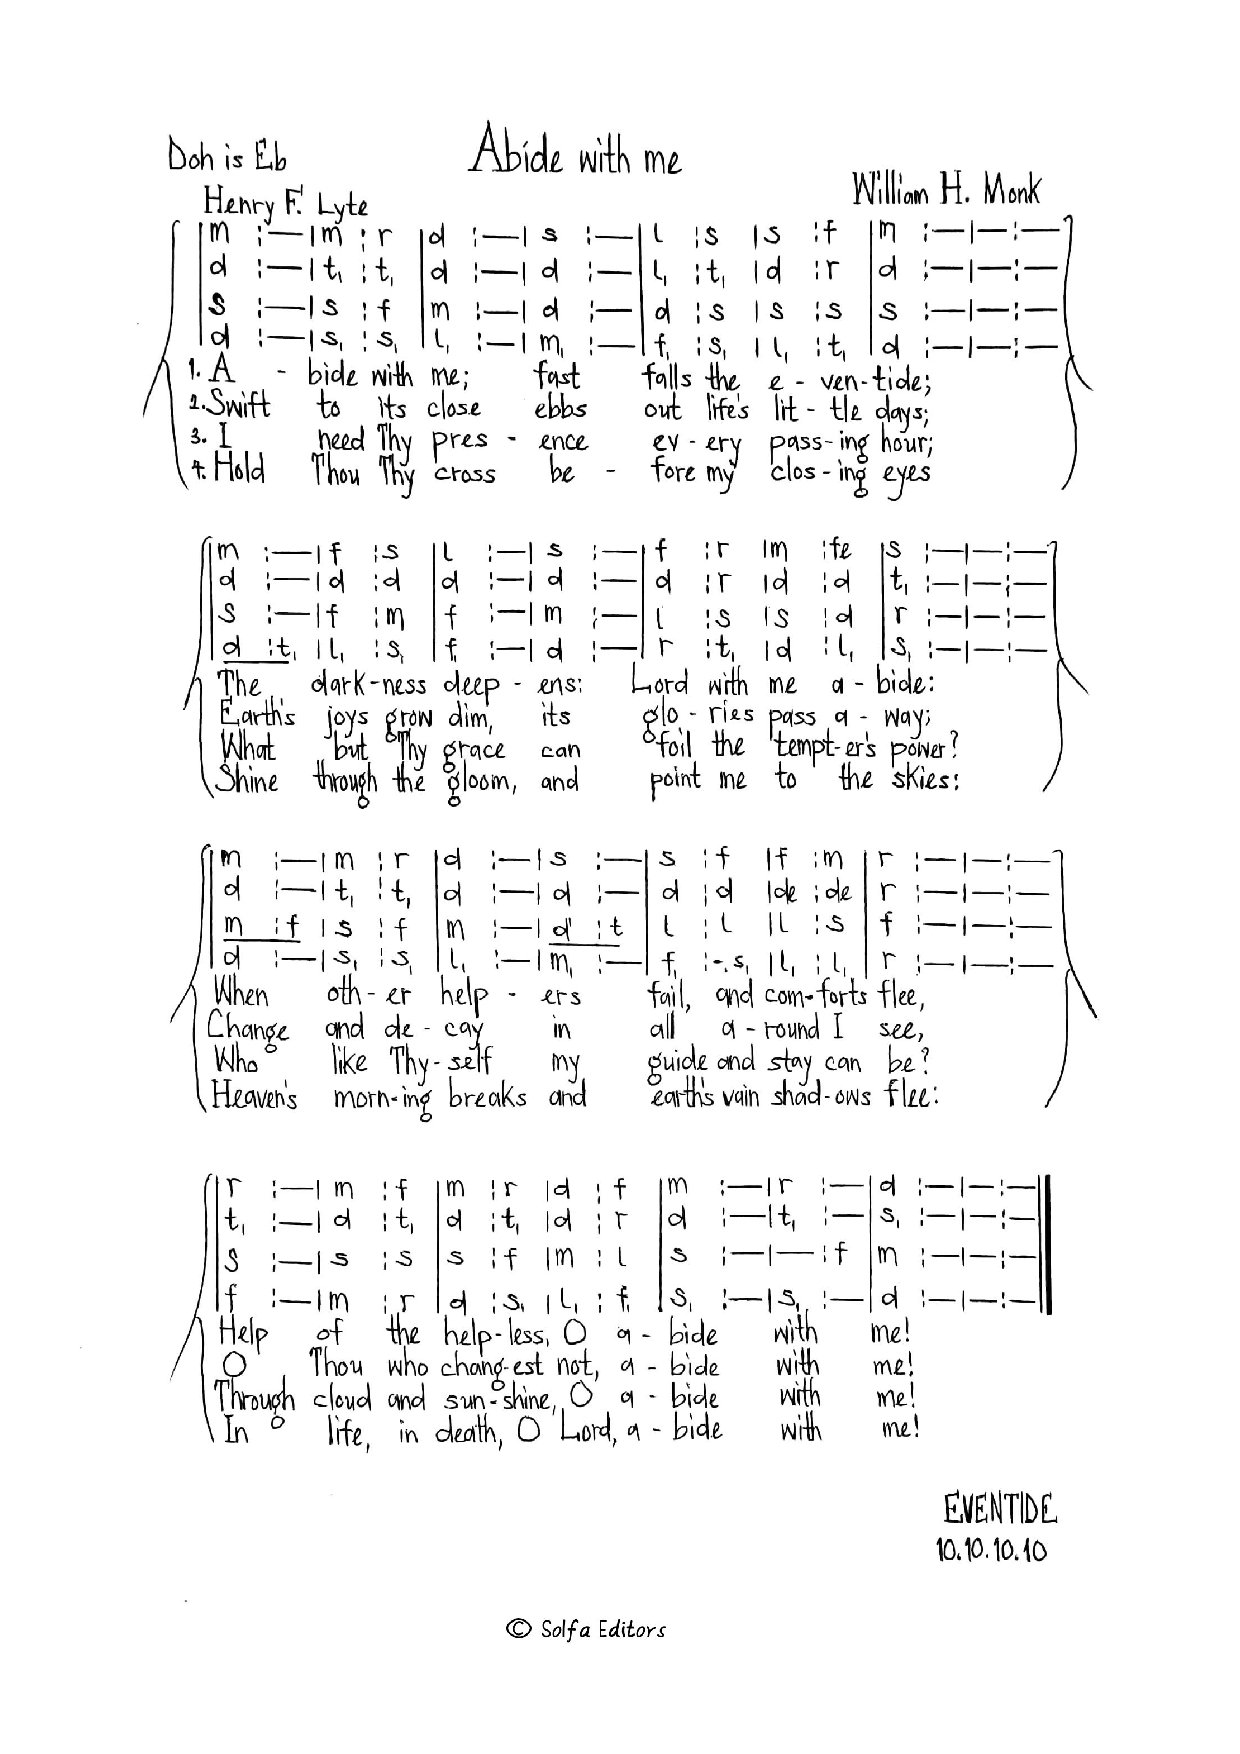 Doh is Eb
Abide with me
Henry F. Lyte
William H. Monk
|m :—|m : r |d :—|s :—|l :s |s :f |m :—|—:—
|d :—|t₁ : t₁ |d :—|d :—|l₁ :t₁ |d :r |d :—|—:—
|s :—|s : f |m :—|d :—|d :s |s :s |s :—|—:—
|d :—|s₁ : s₁ |l₁ :—|m₁ :—|f₁ :s₁ |l₁ :t₁ |d :—|—:—
1. A - bide with me; fast falls the e - ven-tide;
2. Swift to its close ebbs out life's lit - tle days;
3. I need Thy pres - ence ev - ery pass-ing hour;
4. Hold Thou Thy cross be - fore my clos - ing eyes
|m :—|f :s |l :—|s :—|f :r |m :fe |s :—|—:—
|d :—|d :d |d :—|d :—|d :r |d :d |t₁ :—|—:—
|s :—|f :m |f :—|m :—|l :s |s :d |r :—|—:—
|d :t₁ |l₁ :s₁ |f₁ :—|d :—|r :t₁ |d :l₁ |s₁ :—|—:—
The dark-ness deep - ens; Lord with me a - bide:
Earth's joys grow dim, its glo - ries pass a - way;
What but Thy grace can foil the tempt-er's power?
Shine through the gloom, and point me to the skies:
|m :—|m : r |d :—|s :—|s :f |f :m |r :—|—:—
|d :—|t₁ : t₁ |d :—|d :—|d :d |de :de |r :—|—:—
|m :f |s :f |m :—|d' :t |l :l |l :s |f :—|—:—
|d :—|s₁ :s₁ |l₁ :—|m₁ :—|f₁ :-.s₁ |l₁ :l₁ |r :—|—:—
When oth - er help - ers fail, and com-forts flee,
Change and de - cay in all a - round I see,
Who like Thy-self my guide and stay can be?
Heaven's morn-ing breaks and earth's vain shad-ows flee:
|r :—|m :f |m :r |d :f |m :—|r :—|d :—|—:—
|t₁ :—|d :t₁ |d :t₁ |d :r |d :—|t₁ :—|s₁ :—|—:—
|s :—|s :s |s :f |m :l |s :—|—:f |m :—|—:—
|f :—|m :r |d :s₁ |l₁ :f₁ |s₁ :—|s₁ :—|d :—|—:—
Help of the help-less, O a - bide with me!
O Thou who chang-est not, a - bide with me!
Through cloud and sun-shine, O a - bide with me!
In life, in death, O Lord, a - bide with me!
EVENTIDE
10.10.10.10
© Solfa Editors